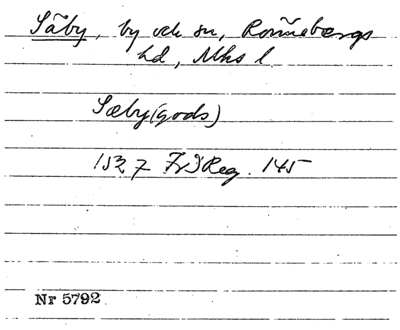 Säby, by och sn, Rönnebergs
hd, Mhs l
Sæby (gods)
1527 Fr I Reg. 145
Nr 5792